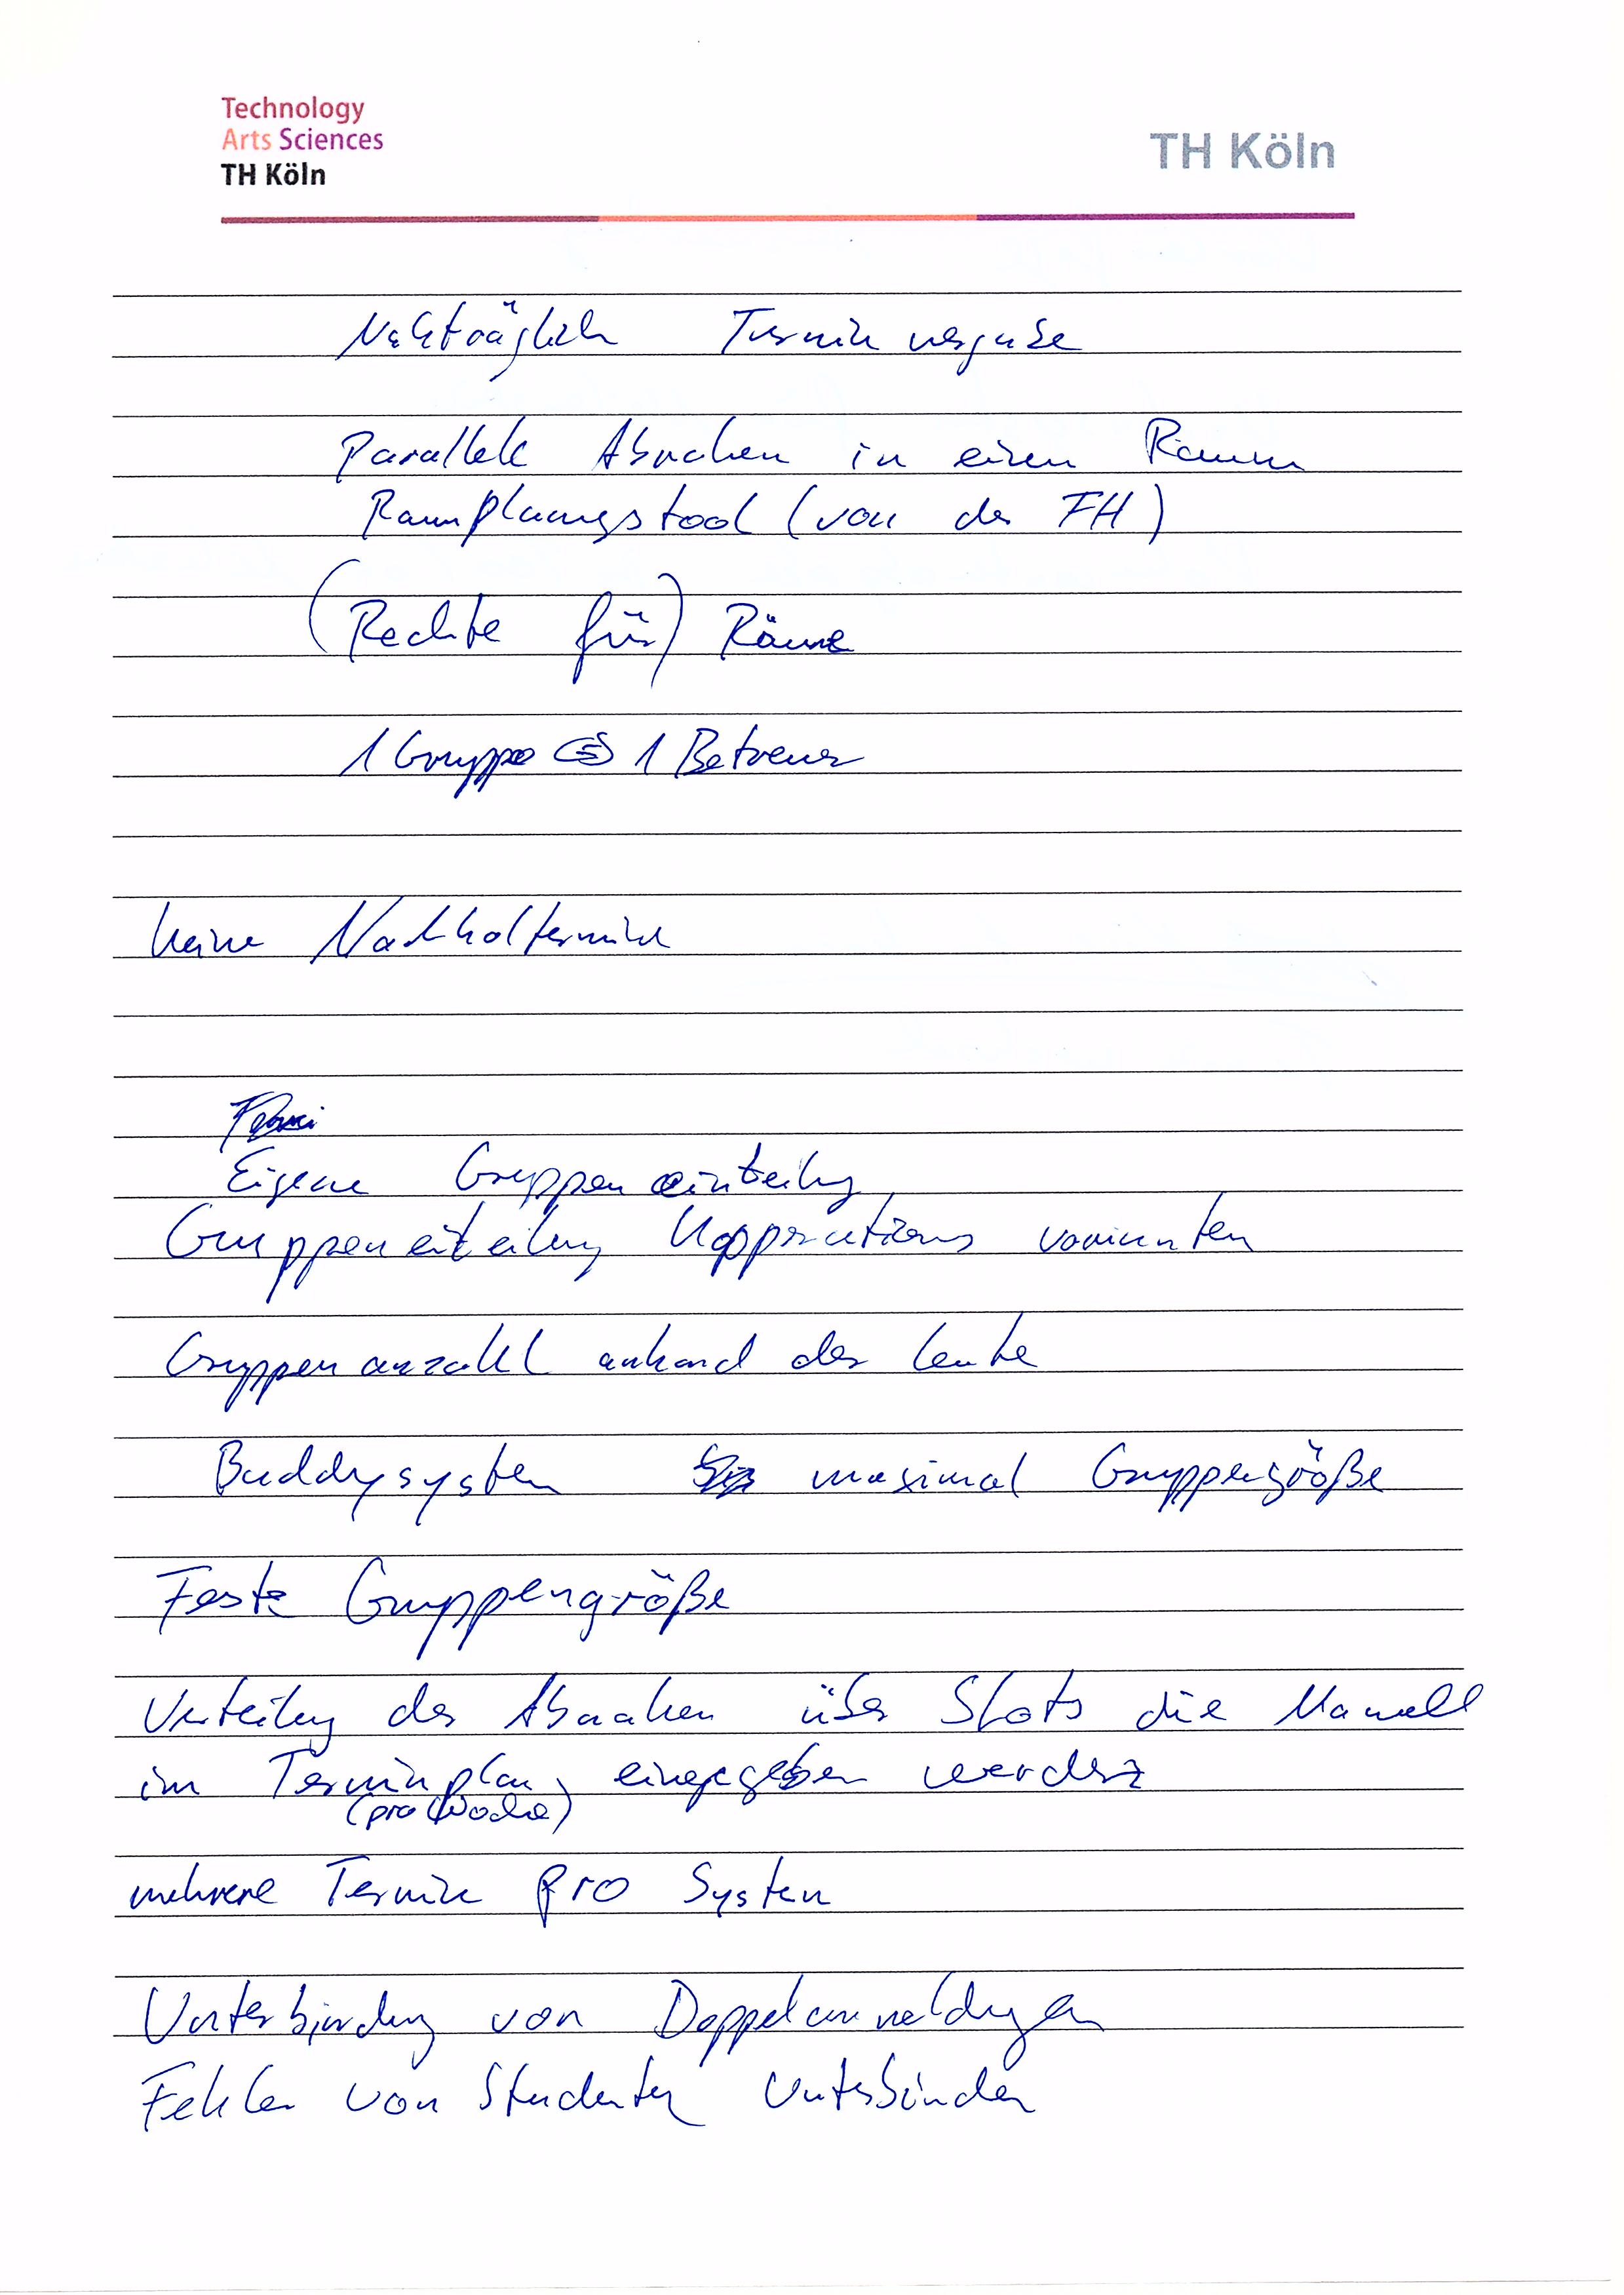 Technology
Arts Sciences
TH Köln
TH Köln
Nachträglich Termin vergabe
Parallele Abnahmen in einen Raum
Raumplanungstool (von der FH)
(Rechte für) Räume
1 Gruppe ⇔ 1 Betreuer
keine Nachholtermine
Eigene Gruppen einteilung
Gruppeneinteilung varianten
Gruppenanzahl anhand der Leute
Buddysystem maximal Gruppengröße
Feste Gruppengröße
Verteilung der Abnahmen über Slots die Manuell
im Terminplan eingegeben werden
(pro Woche)
mehrere Termine pro System
Unterbindung von Doppelanmeldungen
Fehler von Studenten Unterbinden